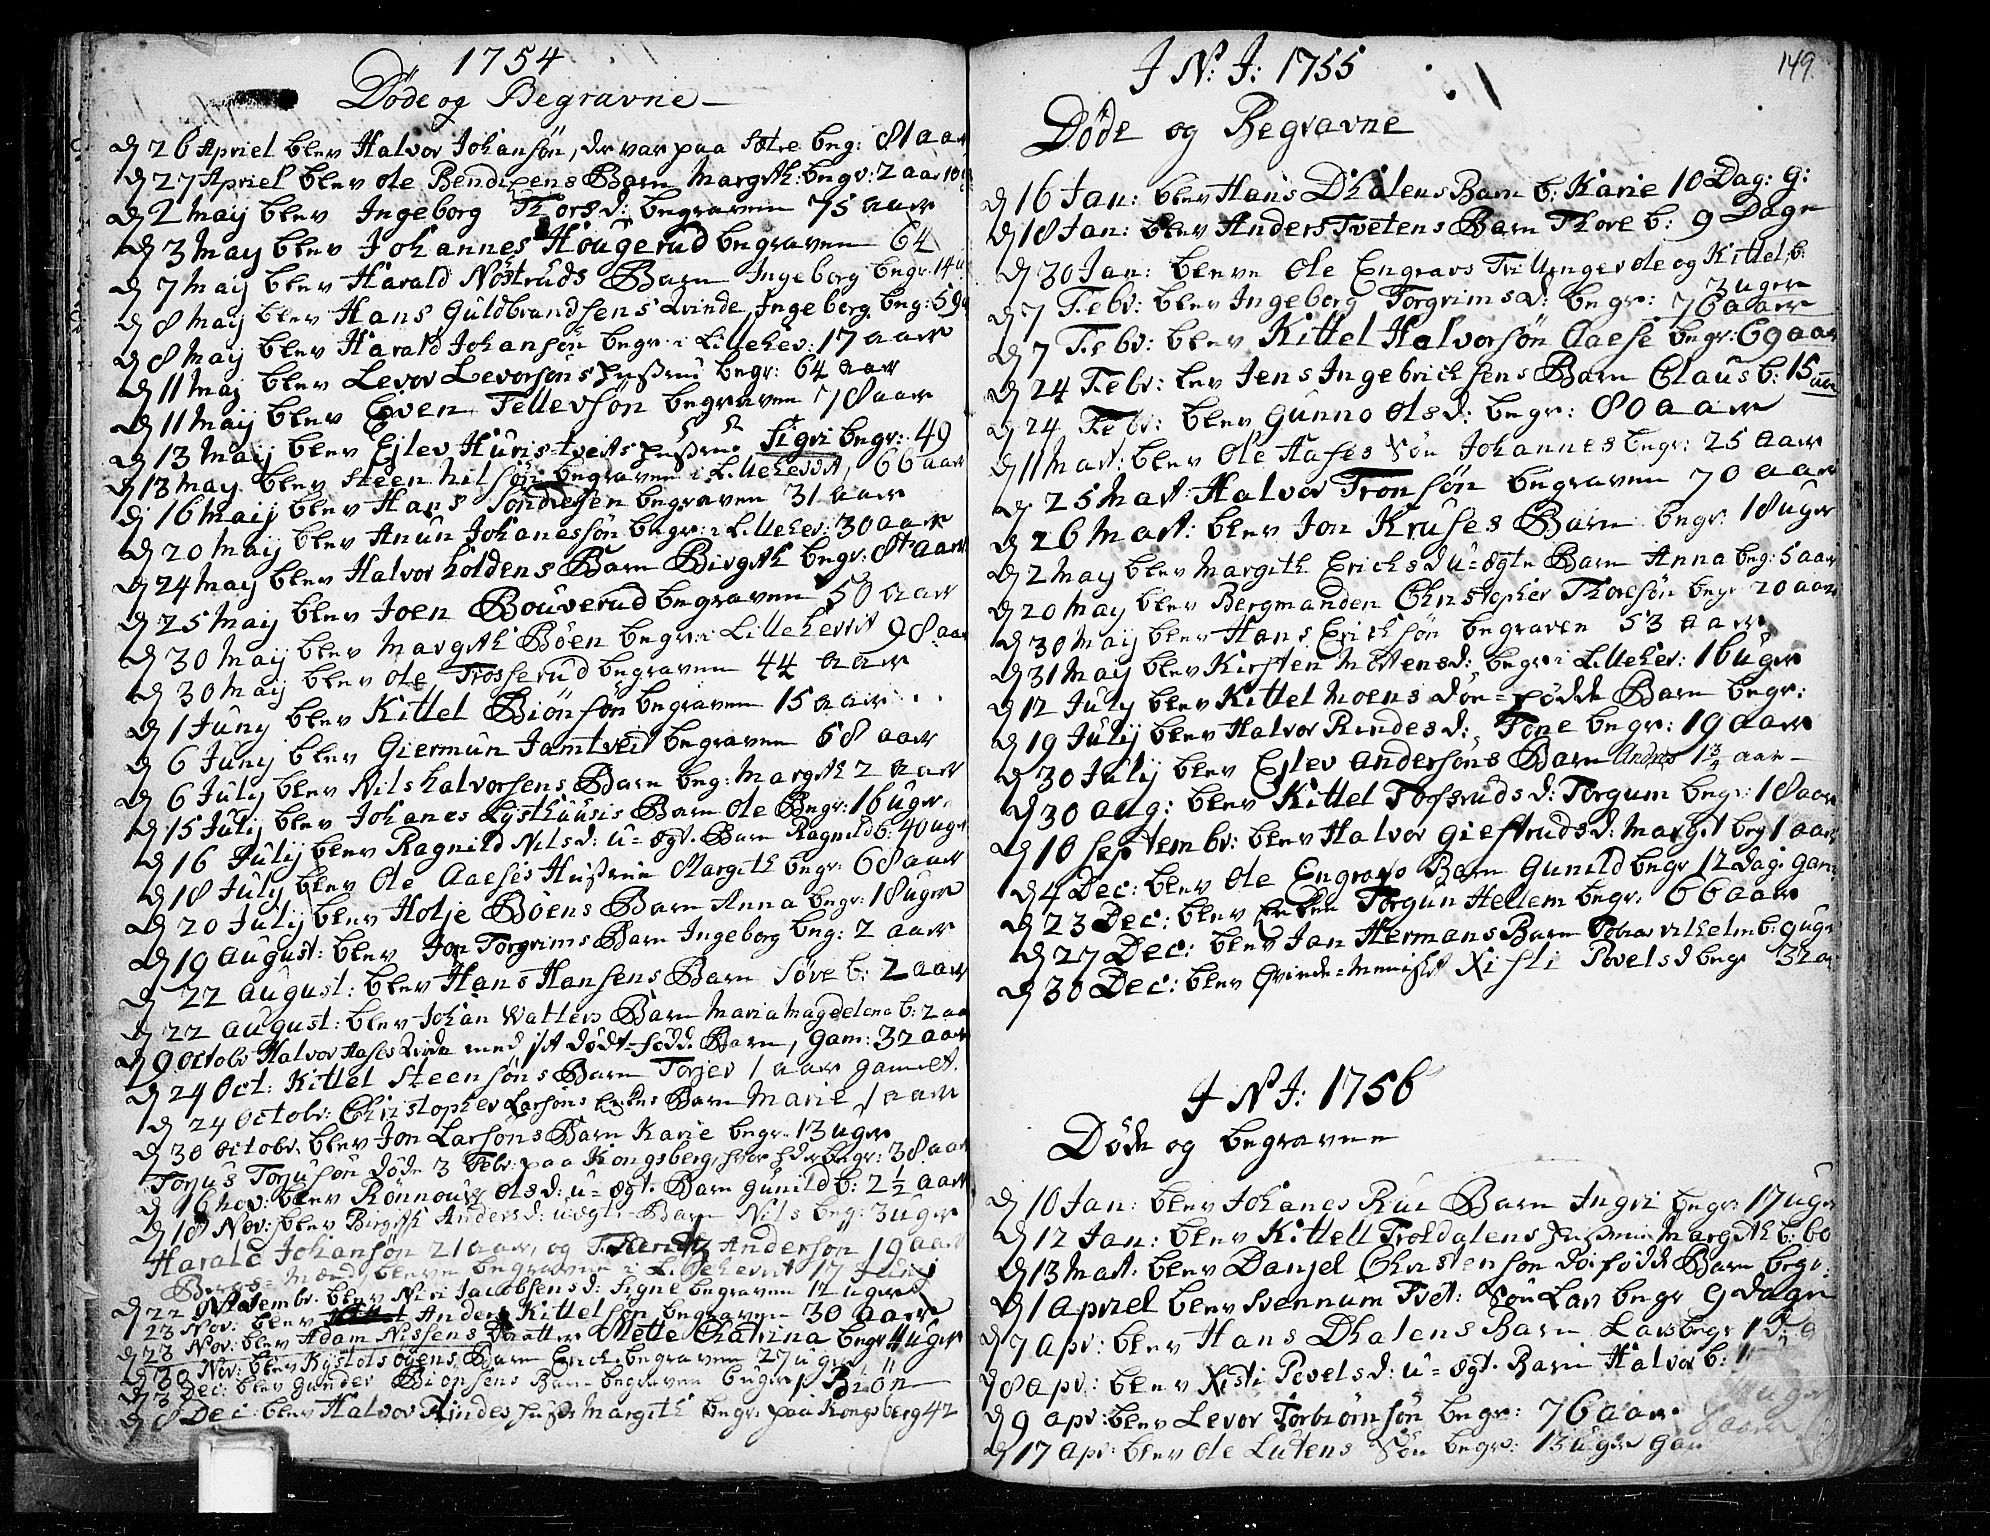 1754
Døde og Begravne
D 26 Apriel blev Halvor Johansøn, der var paa Sætre beg: 81 aar
D 27 Apriel blev Ole Bendixens Barn Margith: begr: 2 aar
D 2 maij blev Ingeborg Thorsd: begraven 75 aar
D 3 May blev Johannes Hougerud begraven 64
D 7 maij blev Harald Nöstruds Barn Ingeborg begr: 14
D 8 Maij blev Hans Guldbrandsens Qvinde, Ingeborg beg:
D 8 May blev Harald Johansøn begr: i Lillehev: 17 aar
D 11 Maj blev Levor Levorsøns Hustrue begr: 64 aar
D 11 Maij blev Even Tellevsøn begraven 78 aar
D 13 Maij blev Ejlev Huris-tveits Hustrue Sigri begr: 49
D 13 May blev Steen Nilsøn begraven i Lillehervit, 66 aar
D 16 Maij blev Hans Sondresen begraven 31 aar
D 20 Maij blev Anun Johanessøn begr: i Lillehev: 30 aar
D 24 May blev Halvor Holdens Barn Birgith begr: 8 aar
D 25 Maij blev Joen Bouverud begraven 50 aar
D 30 Maij blev Margith Bøen begr: i Lillehervit 98 aar
D 30 Maij blev Ole Trosserud begraven 44 aar
D 1 Juny blev Kittel Biønsøn begraven 15 aar
D 6 Juny blev Giermun Jamtveit begraven 68 aar
D 6 July blev Nils Halvorsens Barn beg: Margith 2 aar
D 15 Julij blev Johanes Lysthuusis Barn Ole Begr: 16 uger
D 16 Julij blev Ragnild Nilsd: u=ægt. Barn Ragnild b: 40 uger
D 18 July blev Ole Aaeses Hustrue Margith begr: 68 aar
D 20 Julij blev Holje Bøens Barn Anna begr: 18 uger
D 19 August: blev Jon Torgrims Barn Ingeborg beg: 2 aar
D 22 August: blev Hans Hansens Barn Søve b: 2 aar
D 22 August: blev Johan Walters Barn Maria Magdelena b: 2 aar
D 9 Octobr Halvor Hases Qvinde med sit dødt=fødde Barn, gam: 32 aar
D 24 Oct: Kittel Steensøns Barn Torjer 1 aar gamelt.
D 24 Octobr: Christopher Larsøns Barn Marie 1 aar
D 30 Octobr: blev Jon Larsons Barn Karie begr: 13 uger
Torjus Torjusøn døde 3 Febr: paa Kongsberg, hvor begr: 38 aar
D 16 Nov: blev Rønnoug Olsd: u=ægt. Barn Gunild b: 2 1/2 aar
D 18 Nov: blev Birgith Andersd: uægte Barn Nils beg: 3 uger
Harald Johansøn 21 aar, og Anderson 19 aar
Bergs=Mænd, bleve begraven i Lillehervit 17 Julij
D 22 Novembr: blev Jacobsens d: Signe begraven 12 uger
23 Nov: blev Anders Kittelsøn begraven 30 aar
D 23 Nov: blev Adam Nissens Datter Mette Chatrina begr 4 uger
D 30 Nov: blev Barn Erich begraven 27 uger
D 3 Dec: blev Gunder Biønsens Barn begraven Biøn
D 8 Dec: blev Halvor Rindes Hustr: Margith begr: paa Kongsberg 42
149.
J N: J: 1755
Døde og Begravne
D 16 Jan: blev Hans Dhalens Barn b: Karie 10 Dag: g:
D 18 Jan: blev Anders Tvetens Barn Thore b: 9 Dage
D 30 Jan: bleve Ole Engravs Tvillinger Ole og Kittel, b:
3 uger
D 7 Febr: blev Ingeborg Torgrimsd: begr: 76 aar
D 7 Febr: blev Kittel Halvorsøn Aaese begr: 69 aar
D 24 Febr: lev Jens Ingebrichsens Barn Claus b: 15
D 24 Febr: blev Gunno Olsd: begr: 80 aar
D 11 Mart: blev Ole Hases Søn Johannes begr: 25 aar
D 25 Mart: Halvor Tronsøn begraven 70 aar
D 26 Mart: blev Jon Kruses Barn begr: 18 uger
D 2 May blev Margith Ericksd u=ægte Barn Anna beg: 5 aar
D 20 May blev Bergmanden Christopher Thoresøn begr 20 aar
D 30 Maij blev Hans Erichsøn begraven 53 aar
D 31 Maij blev Kirsten Mortensd: begr: i Lillehev: 16 uger
D 12 July blev Kittel Moens død=fødde Barn begr:
D 19 Julij blev Halvor Rindes d: Tone begr: 19 aar
D 30 Julij blev Ejlev Andersøns Barn Anders 1 3/4 aar
D 30 aug: blev Kittel Torsruds d: Torgum begr: 18 aar
D 10 Septembr: blev Halvor Gieftruds d: Margit begr 1 aar
D 4 Dec: blev Ole Engravs Barn Gunild begr 12 Dag: gam:
D 23 Dec: blev Enken Torgun Hellem begr: 66 aar
D 27 Dec: blev Jan Hermans Barn Tobias Vilhelm b: 9 uger
D 30 Dec: blev Qvinde=Mennisket Kisti Povelsd begr 32 a
J N J: 1756
Døde og begraven
D 10 Jan: blev Johanes Rue Barn Ingri begr: 17 uger
D 12 Jan: blev Kittell Troldalens Hustrue Margith b: 60
D 13 Mart. blev Danjel Christensøn dødfødde Barn begr:
D 1 Apriel blev Svennum Tvet: Søn Lars begr 9 dage
D 7 apr: blev Hans Dhalens Barn Lars begr
D 8 apr: blev Kisti Povelsd: u=ægt. Barn Halvor b:
D 9 apr: blev Levor Torbiørnsøn begr: 76 aar
D 17 Apr: blev Ole Lutens Søn begr: 13 uger gam